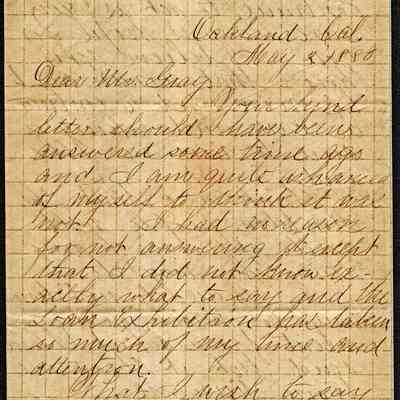 Oakland, Cal.
May 8 1880
Dear Mr. Gray
Your kind
letter should have been
answered some time ago
and I am quite ashamed
of myself to think it was
not. I had no reason
for not answering it except
that I did not know ex-
actly what to say and the
Loan Exhibition has taken
so much of my time and
attention.
What I wish to say